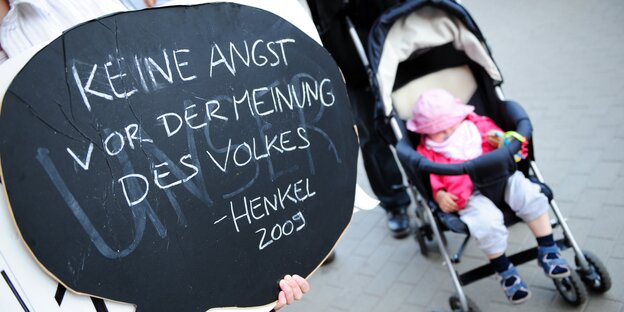 KEINE ANGST
VOR DER MEINUNG
DES VOLKES
-HENKEL
2009
UNSER